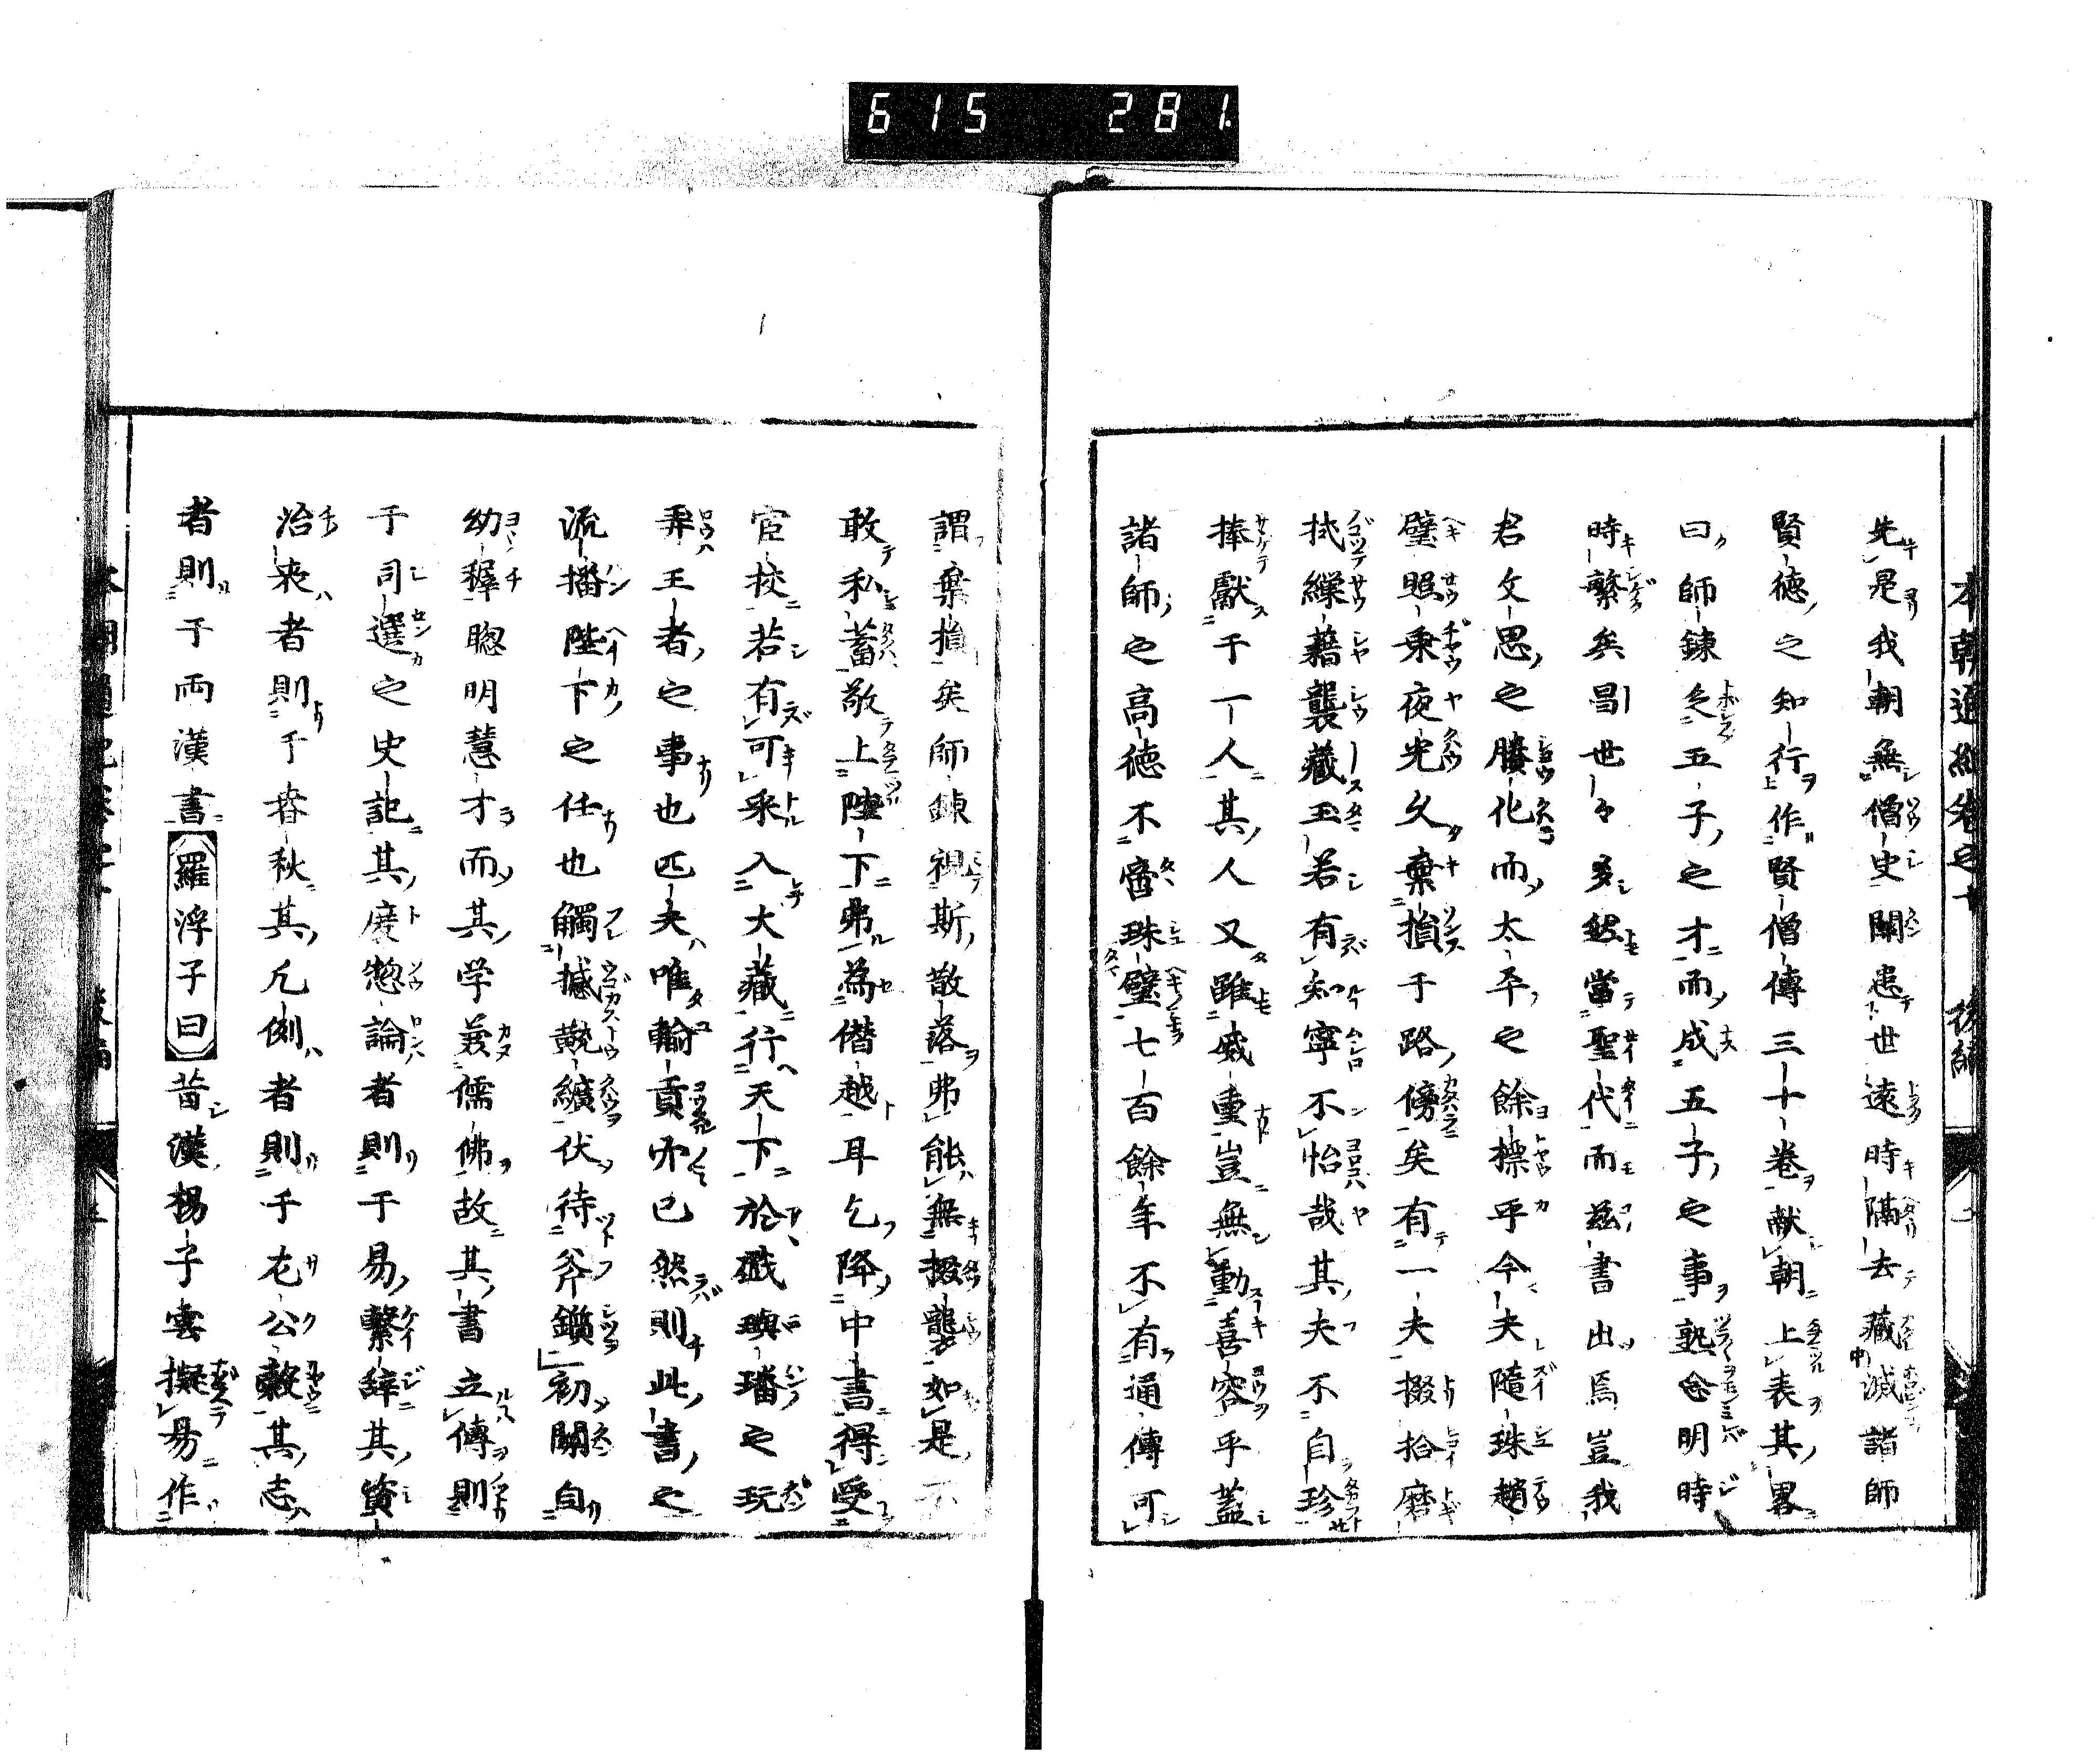 615 281
先是我朝無僧史闕患世遠時隔去藏滅諸師
賢德之知行作賢僧傳三十卷献朝上表其畧
曰師錬乏五子之才而成五子之事熟念明時
時繫矣昌世々多然當聖代而兹書出焉豈我
君文思之勝化而太平之餘標乎今夫隨珠趙
璧照乗夜光久棄損于路傍矣有一夫掇拾磨
拭繅藉襲藏玉若有知寧不怡哉其夫不自珍
捧獻于一人其人又雖威重豈無動喜容乎蓋
諸師之高德不啻珠璧七百餘年不有通傳可
謂棄損矣師錬視斯散落弗能無掇襲如是不
敢私蓄敬上陛下弗為僭越耳乞降中書得受
官挍若有可采入大藏行天下於戯璵璠之玩
弄王者之事也匹夫唯輸貢而已然則此書之
流播陛下之任也觸撼黈纊伏待斧鑕初關自
幼穉聰明慧才而其学兼儒佛故其書立傳則
于司遷之史記其度惣論者則于易繫辭其資
治表者則于春秋其凡例者則于左公穀其志
者則于両漢書羅浮子曰昔漢楊子雲擬易作